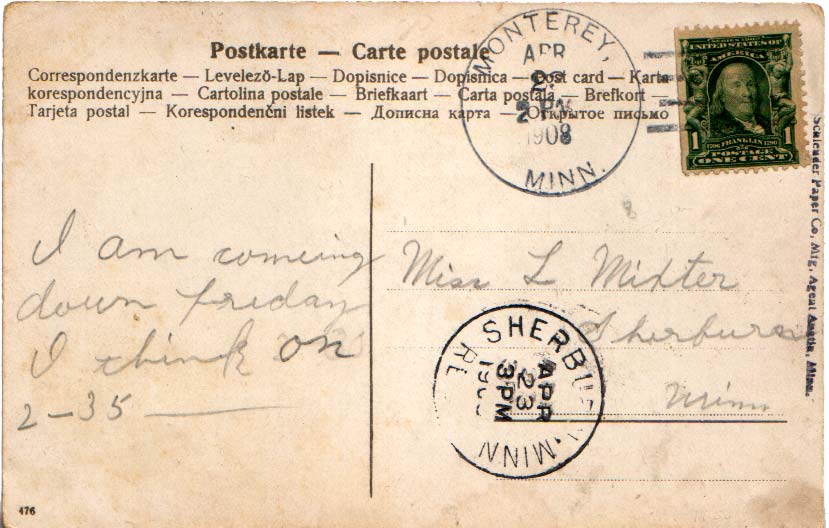 Postkarte — Carte postale
Correspondenzkarte — Levelező-Lap — Dopisnice — Dopisnica — Post card — Karta
korespondencyjna — Cartolina postale — Briefkaart — Carta postala — Brefkort —
Tarjeta postal — Korespondenční listek — Дописна карта — Открытое письмо
MONTEREY,
APR
2 PM
1908
MINN.
SERIES 1902
UNITED STATES OF
AMERICA
1 1
1706 FRANKLIN 1790
POSTAGE
ONE CENT
Schleuder Paper Co, Mfg. Agent Austin, Minn.
I am comeing
down friday
I think on
2-35
Miss L Mixter
Sherburn
Minn
SHERBURN, MINN
APR
23
3 PM
476